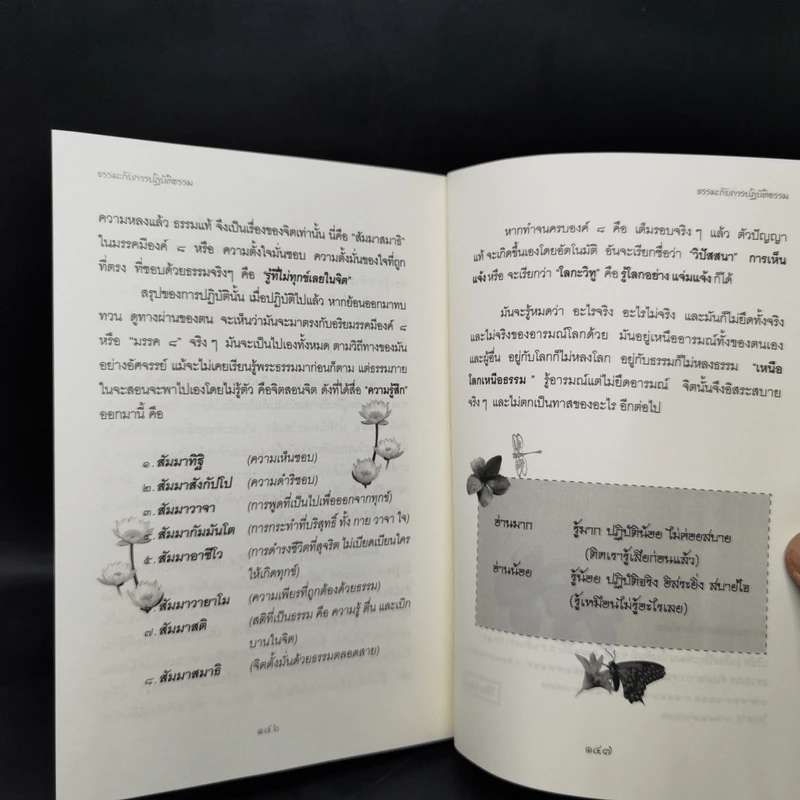 ธรรมะกับการปฏิบัติธรรม
ความหลงแล้ว ธรรมแท้ จึงเป็นเรื่องของจิตเท่านั้น นี่คือ "สัมมาสมาธิ"
ในมรรคมีองค์ ๘ หรือ ความตั้งใจมั่นชอบ ความตั้งมั่นของใจที่ถูก
ที่ตรง ที่ชอบด้วยธรรมจริงๆ คือ "รู้ที่ไม่ทุกข์เลยในจิต"
สรุปของการปฏิบัตินั้น เมื่อปฏิบัติไปแล้ว หากย้อนออกมาทบ
ทวน ดูทางผ่านของตน จะเห็นว่ามันจะมาตรงกับอริยมรรคมีองค์ ๘
หรือ "มรรค ๘" จริงๆ มันจะเป็นไปเองทั้งหมด ตามวิถีทางของมัน
อย่างอัศจรรย์ แม้จะไม่เคยเรียนรู้พระธรรมมาก่อนก็ตาม แต่ธรรมภาย
ในจะสอนจะพาไปเองโดยไม่รู้ตัว คือจิตสอนจิต ดังที่ได้สื่อ "ความรู้สึก"
ออกมานี้ คือ
๑. สัมมาทิฐิ (ความเห็นชอบ)
๒. สัมมาสังกัปโป (ความดำริชอบ)
๓. สัมมาวาจา (การพูดที่เป็นไปเพื่อออกจากทุกข์)
๔. สัมมากัมมันโต (การกระทำที่บริสุทธิ์ ทั้ง กาย วาจา ใจ)
๕. สัมมาอาชีโว (การดำรงชีวิตที่สุจริต ไม่เบียดเบียนใคร
ให้เกิดทุกข์)
๖. สัมมาวายาโม (ความเพียรที่ถูกต้องด้วยธรรม)
๗. สัมมาสติ (สติที่เป็นธรรม คือ ความรู้ ตื่น และเบิก
บานในจิต)
๘. สัมมาสมาธิ (จิตตั้งมั่นด้วยธรรมตลอดสาย)
๑๔๖
ธรรมะกับการปฏิบัติธรรม
หากทำจนครบองค์ ๘ คือ เต็มรอบจริงๆ แล้ว ตัวปัญญา
แท้ จะเกิดขึ้นเองโดยอัตโนมัติ อันจะเรียกชื่อว่า "วิปัสสนา" การเห็น
แจ้ง หรือ จะเรียกว่า "โลกะวิทู" คือ รู้โลกอย่าง แจ่มแจ้ง ก็ได้
มันจะรู้หมดว่า อะไรจริง อะไรไม่จริง และมันก็ไม่ยึดทั้งจริง
และไม่จริงของอารมณ์โลกด้วย มันอยู่เหนืออารมณ์ทั้งของตนเอง
และผู้อื่น อยู่กับโลกก็ไม่หลงโลก อยู่กับธรรมก็ไม่หลงธรรม "เหนือ
โลกเหนือธรรม" รู้อารมณ์แต่ไม่ยึดอารมณ์ จิตนั้นจึงอิสระสบาย
จริงๆ และไม่ตกเป็นทาสของอะไร อีกต่อไป
อ่านมาก รู้มาก ปฏิบัติน้อย ไม่ค่อยสบาย
(ติดเรารู้เสียก่อนแล้ว)
อ่านน้อย รู้น้อย ปฏิบัติจริง อิสระยิ่ง สบายใจ
(รู้เหมือนไม่รู้อะไรเลย)
๑๔๗